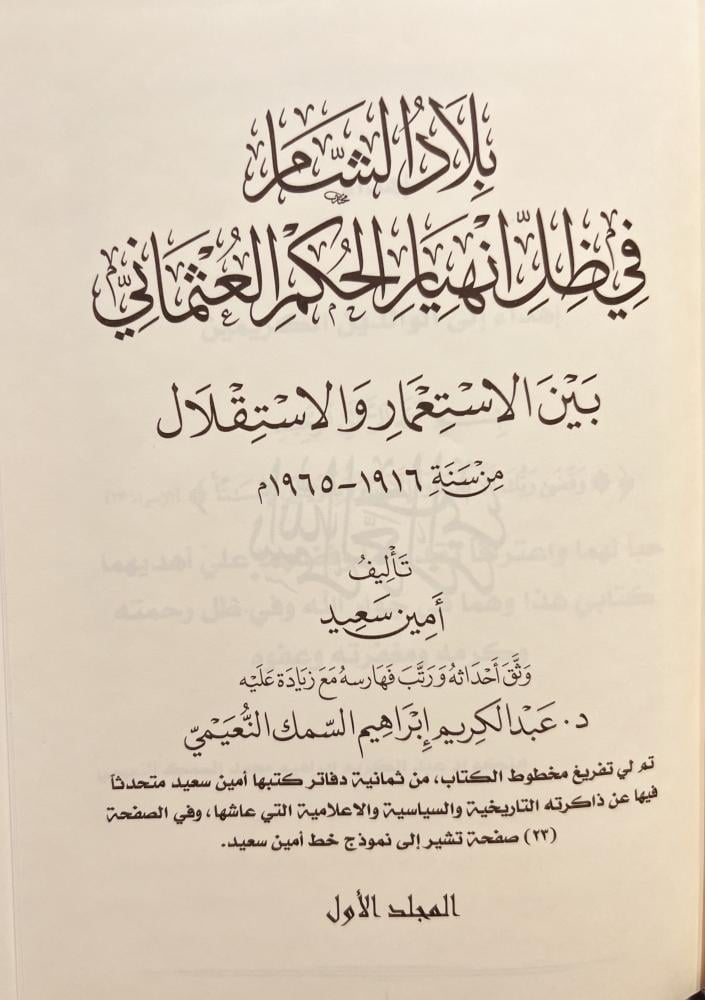 بِلَادُ الشَّام
فِي ظِلِّ انْهِيَارِ الحُكْمِ العُثْمَانِيّ
بَيْنَ الاسْتِعْمَارِ وَالاسْتِقْلَال
مِنْ سَنَةِ ١٩١٦ - ١٩٦٥م
تَأْلِيفُ
أَمِين سَعِيد
وَثَّقَ أَحْدَاثَهُ وَرَتَّبَ فَهَارِسَهُ مَعَ زِيَادَة عَلَيْه
د. عَبْد الكَرِيم إِبْرَاهِيم السّمك النُّعَيْمِيّ
تم لي تفريغ مخطوط الكتاب، من ثمانية دفاتر كتبها أمين سعيد متحدثاً
فيها عن ذاكرته التاريخية والسياسية والاعلامية التي عاشها، وفي الصفحة
(٢٣) صفحة تشير إلى نموذج خط أمين سعيد.
المجلد الأول